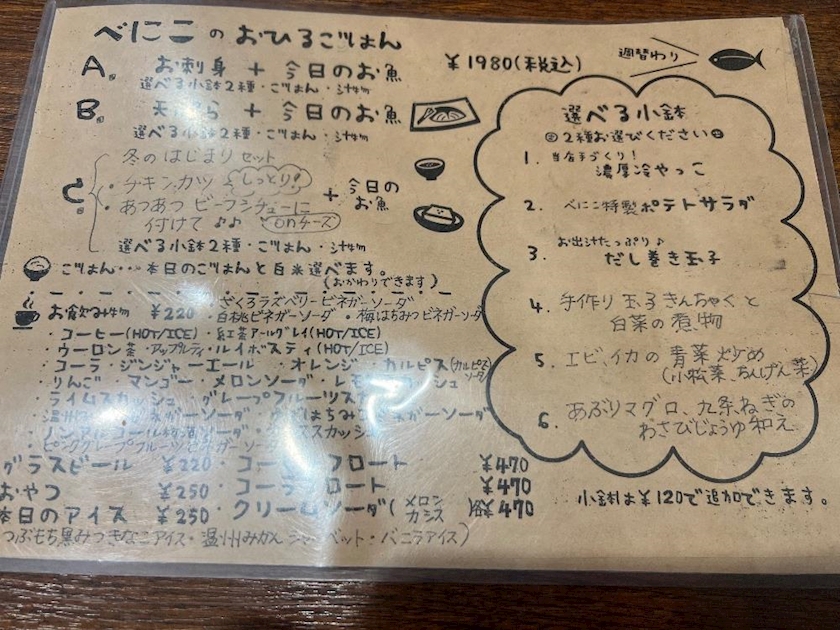 べにこのおひるごはん
A. お刺身 + 今日のお魚 ¥1980(税込)
選べる小鉢2種・ごはん・汁物
B. 天ぷら + 今日のお魚
選べる小鉢2種・ごはん・汁物
C. 冬のはじまりセット
・チキンカツ しっとり!
・あつあつ ビーフシチューに
付けて♪♪ onチーズ
+ 今日のお魚
選べる小鉢2種・ごはん・汁物
ごはん…本日のごはんと白米選べます。
(おかわりできます)
お飲み物 ¥220 ・ざくろラズベリービネガーソーダ
・白桃ビネガーソーダ ・梅はちみつビネガーソーダ
・コーヒー(HOT/ICE) ・紅茶アールグレイ(HOT/ICE)
・ウーロン茶・アップルティ・ルイボスティ(HOT/ICE)
・コーラ・ジンジャーエール ・オレンジ・カルピス(カルピスソーダ)
・りんご マンゴー・メロンソーダ・レモンスカッシュ
・ライムスカッシュ グレープフルーツ
ビネガーソーダ はちみつビネガーソーダ
・ノンアルコール スカッシュ
・ピンクグレープフルーツビネガーソーダ
グラスビール ¥220 ・コーヒーフロート ¥470
おやつ ¥250 ・コーラフロート ¥470
本日のアイス ¥250 ・クリームソーダ(メロン カシス) ¥470
つぶもち黒みつきなこアイス・温州みかんシャーベット・バニラアイス)
週替わり
選べる小鉢
2種お選びください
1. 当店手づくり!
濃厚冷やっこ
2. べにこ特製ポテトサラダ
3. お出汁たっぷり♪
だし巻き玉子
4. 手作り 玉子きんちゃくと
白菜の煮物
5. エビ、イカの青菜炒め
(小松菜、ちんげん菜)
6. あぶりマグロ、九条ねぎの
わさびじょうゆ和え
小鉢は¥120で追加できます。